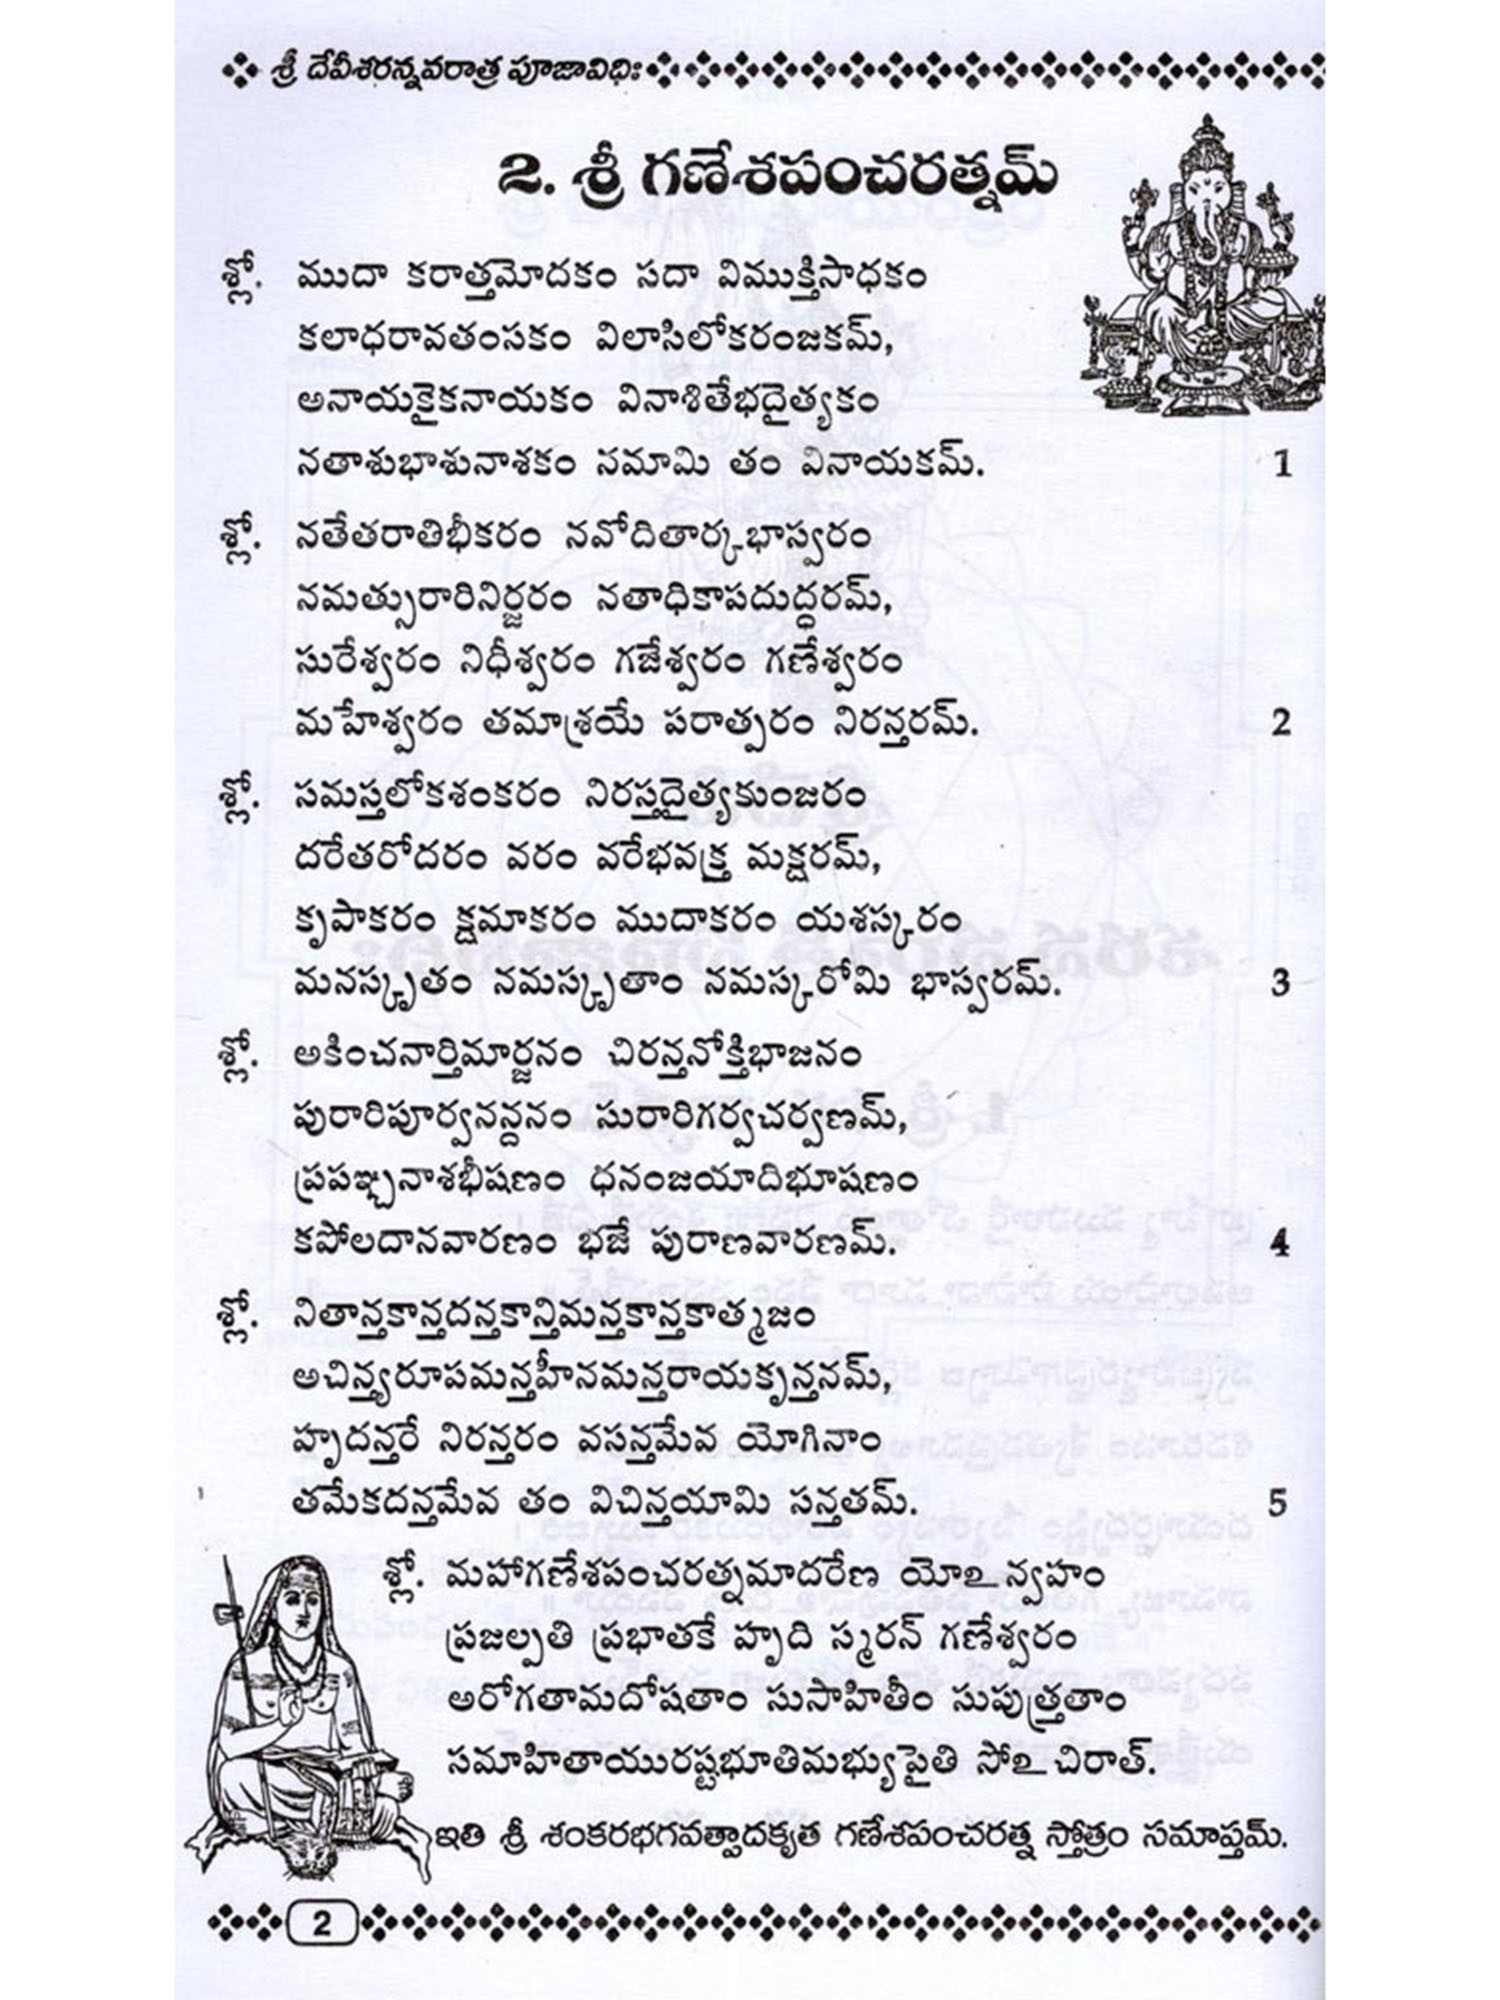 శ్రీ దేవీశరన్నవరాత్ర పూజావిధిః
2. శ్రీ గణేశపంచరత్నమ్
శ్లో. ముదా కరాత్తమోదకం సదా విముక్తిసాధకం
కలాధరావతంసకం విలాసిలోకరంజకమ్,
అనాయకైకనాయకం వినాశితేభదైత్యకం
నతాశుభాశునాశకం నమామి తం వినాయకమ్. 1
శ్లో. నతేతరాతిభీకరం నవోదితార్కభాస్వరం
నమత్సురారినిర్జరం నతాధికాపదుద్ధరమ్,
సురేశ్వరం నిధీశ్వరం గజేశ్వరం గణేశ్వరం
మహేశ్వరం తమాశ్రయే పరాత్పరం నిరన్తరమ్. 2
శ్లో. సమస్తలోకశంకరం నిరస్తదైత్యకుంజరం
దరేతరోదరం వరం వరేభవక్త్ర మక్షరమ్,
కృపాకరం క్షమాకరం ముదాకరం యశస్కరం
మనస్కృతం నమస్కృతాం నమస్కరోమి భాస్వరమ్. 3
శ్లో. అకించనార్తిమార్జనం చిరన్తనోక్తిభాజనం
పురారిపూర్వనన్దనం సురారిగర్వచర్వణమ్,
ప్రపఞ్చనాశభీషణం ధనంజయాదిభూషణం
కపోలదానవారణం భజే పురాణవారణమ్. 4
శ్లో. నితాన్తకాన్తదన్తకాన్తిమన్తకాన్తకాత్మజం
అచిన్త్యరూపమన్తహీనమన్తరాయకృన్తనమ్,
హృదన్తరే నిరన్తరం వసన్తమేవ యోగినాం
తమేకదన్తమేవ తం విచిన్తయామి సన్తతమ్. 5
శ్లో. మహాగణేశపంచరత్నమాదరేణ యోఽన్వహం
ప్రజల్పతి ప్రభాతకే హృది స్మరన్ గణేశ్వరం
అరోగతామదోషతాం సుసాహితీం సుపుత్త్రతాం
సమాహితాయురష్టభూతిమభ్యుపైతి సోఽచిరాత్.
ఇతి శ్రీ శంకరభగవత్పాదకృత గణేశపంచరత్న స్తోత్రం సమాప్తమ్.
2